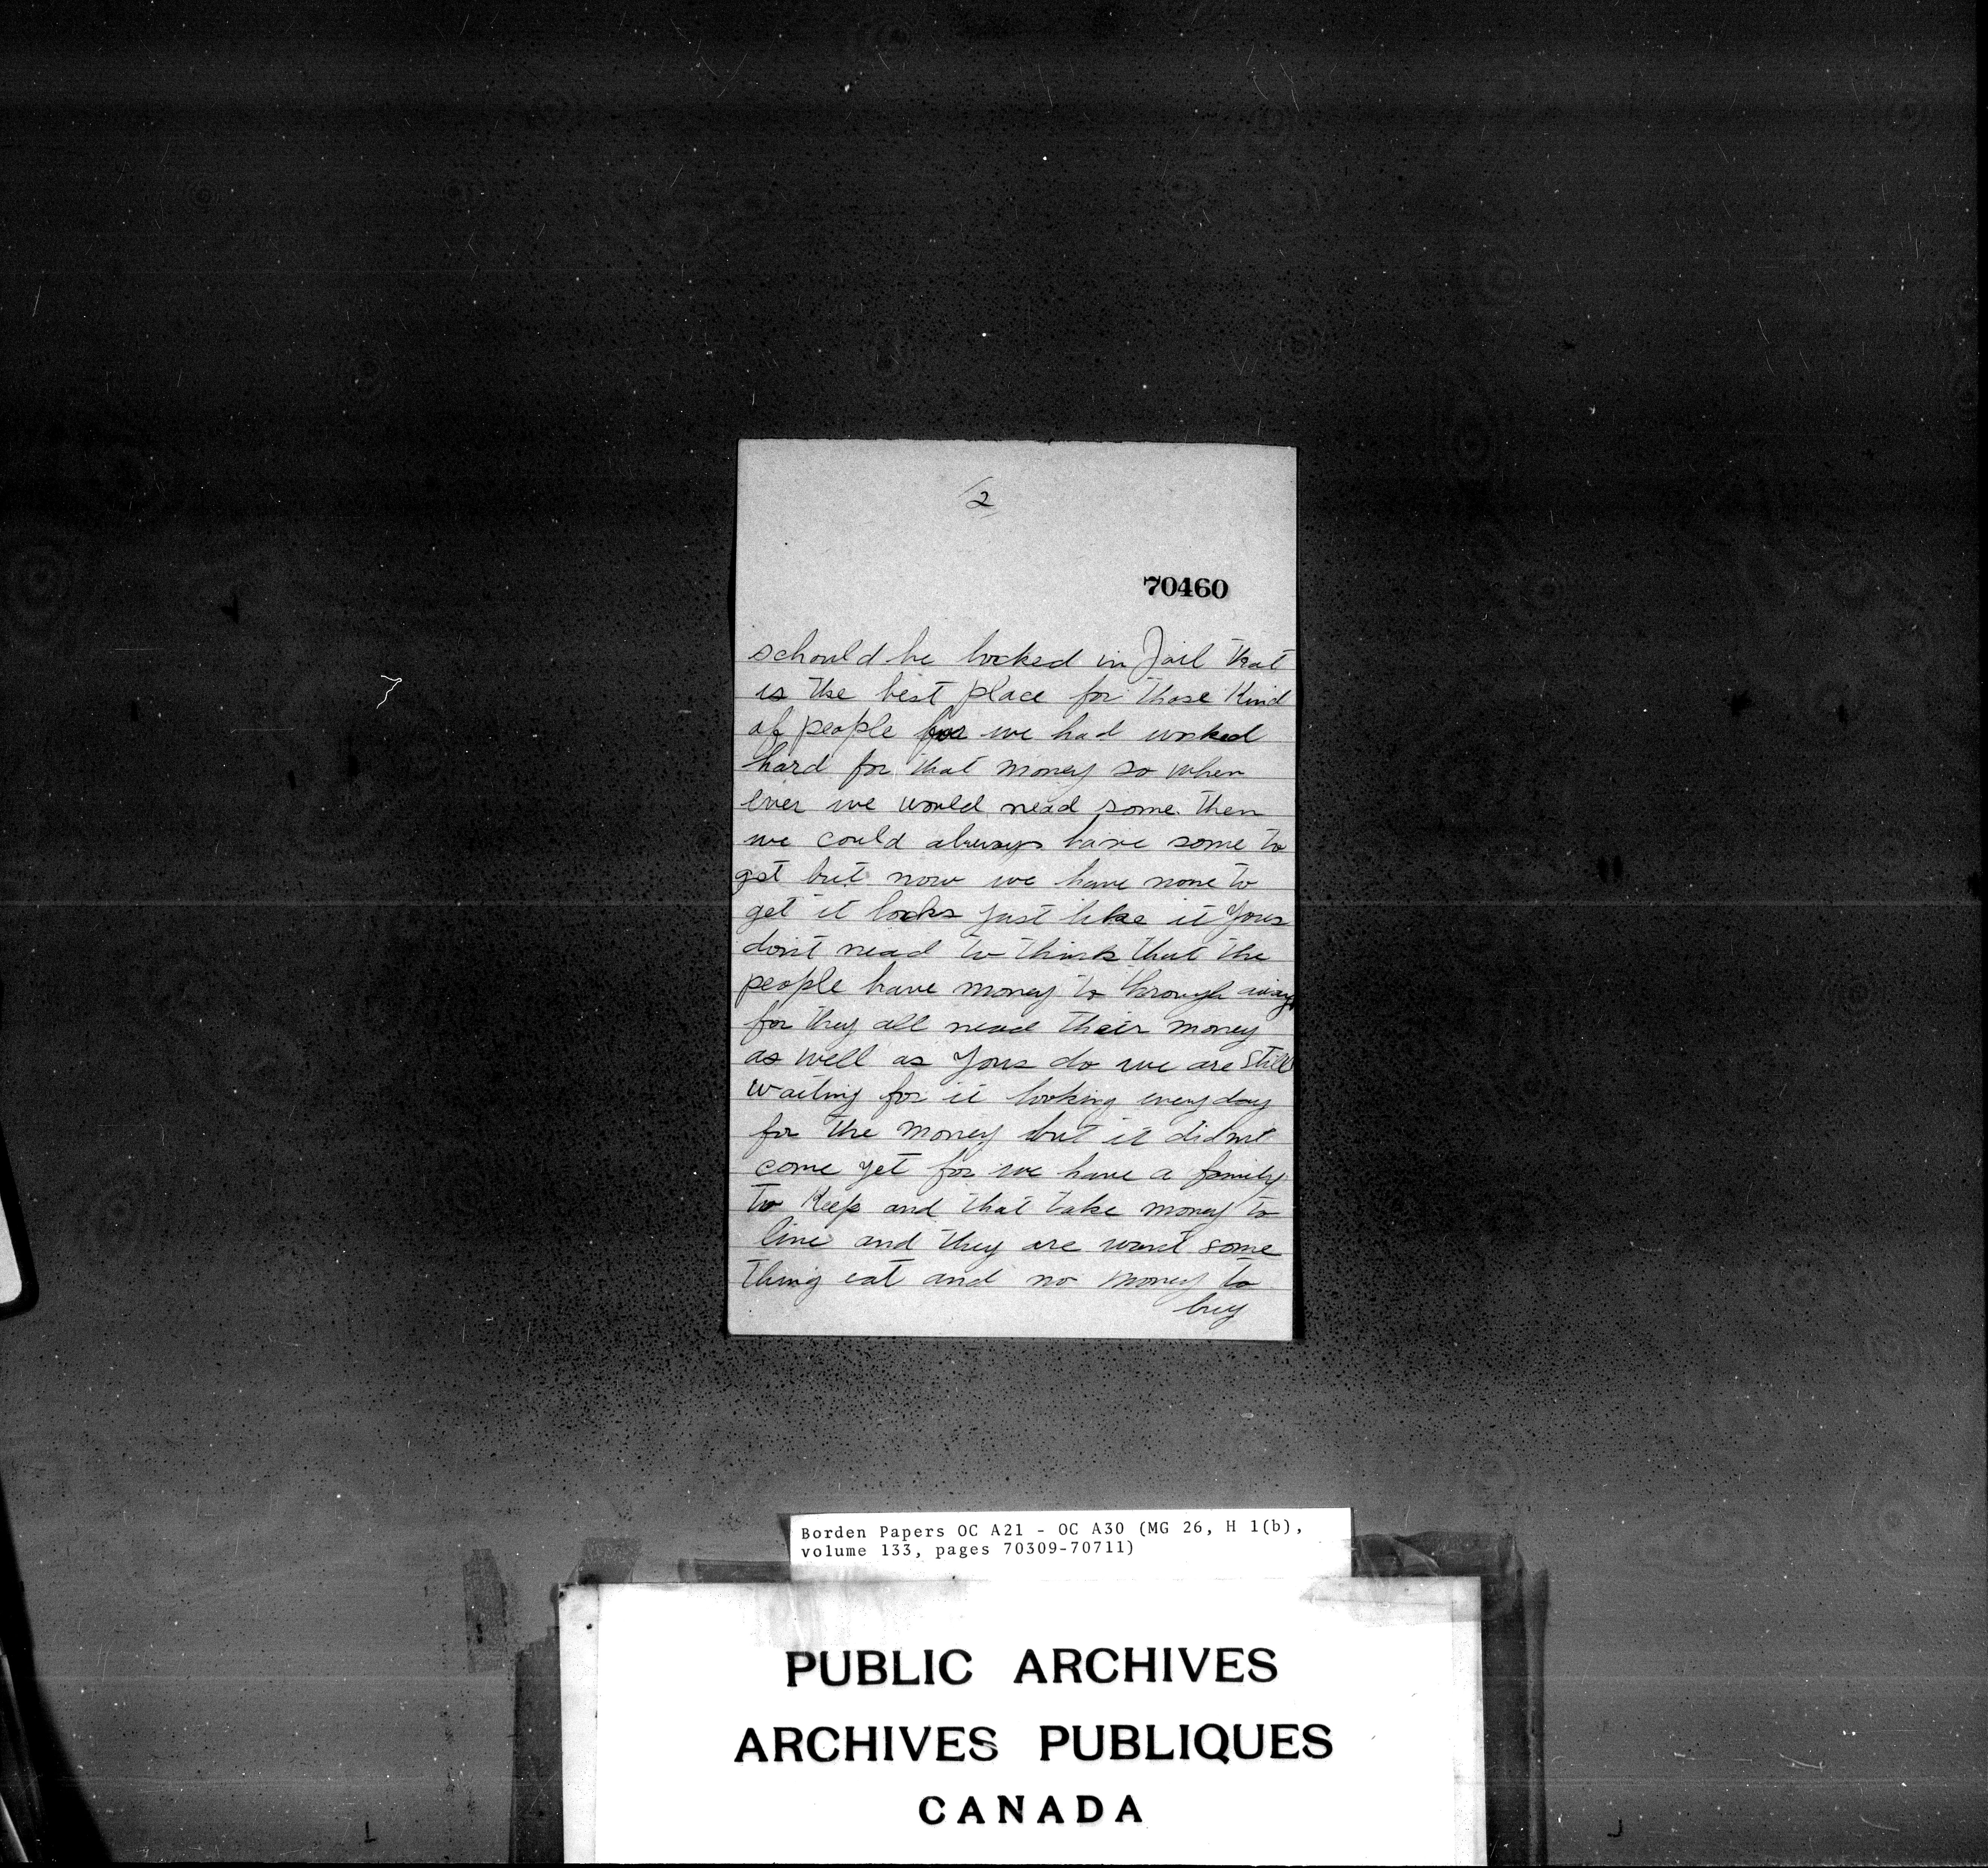 2
70460
schould be locked in Jail that
is the best place for those Kind
of people for we had worked
hard for that money so when
ever we would nead some then
we could always have some to
get but now we have none to
get it looks just like it Yous
don't nead to think that the
people have money to through away
for they all nead their money
as well as Yous do we are still
waiting for it looking everyday
for the money but it didnt
come yet for we have a family
to Keep and that take money to
live and they are want some
thing eat and no money to
buy
Borden Papers OC A21 - OC A30 (MG 26, H 1(b),
volume 133, pages 70309-70711)
PUBLIC ARCHIVES
ARCHIVES PUBLIQUES
CANADA